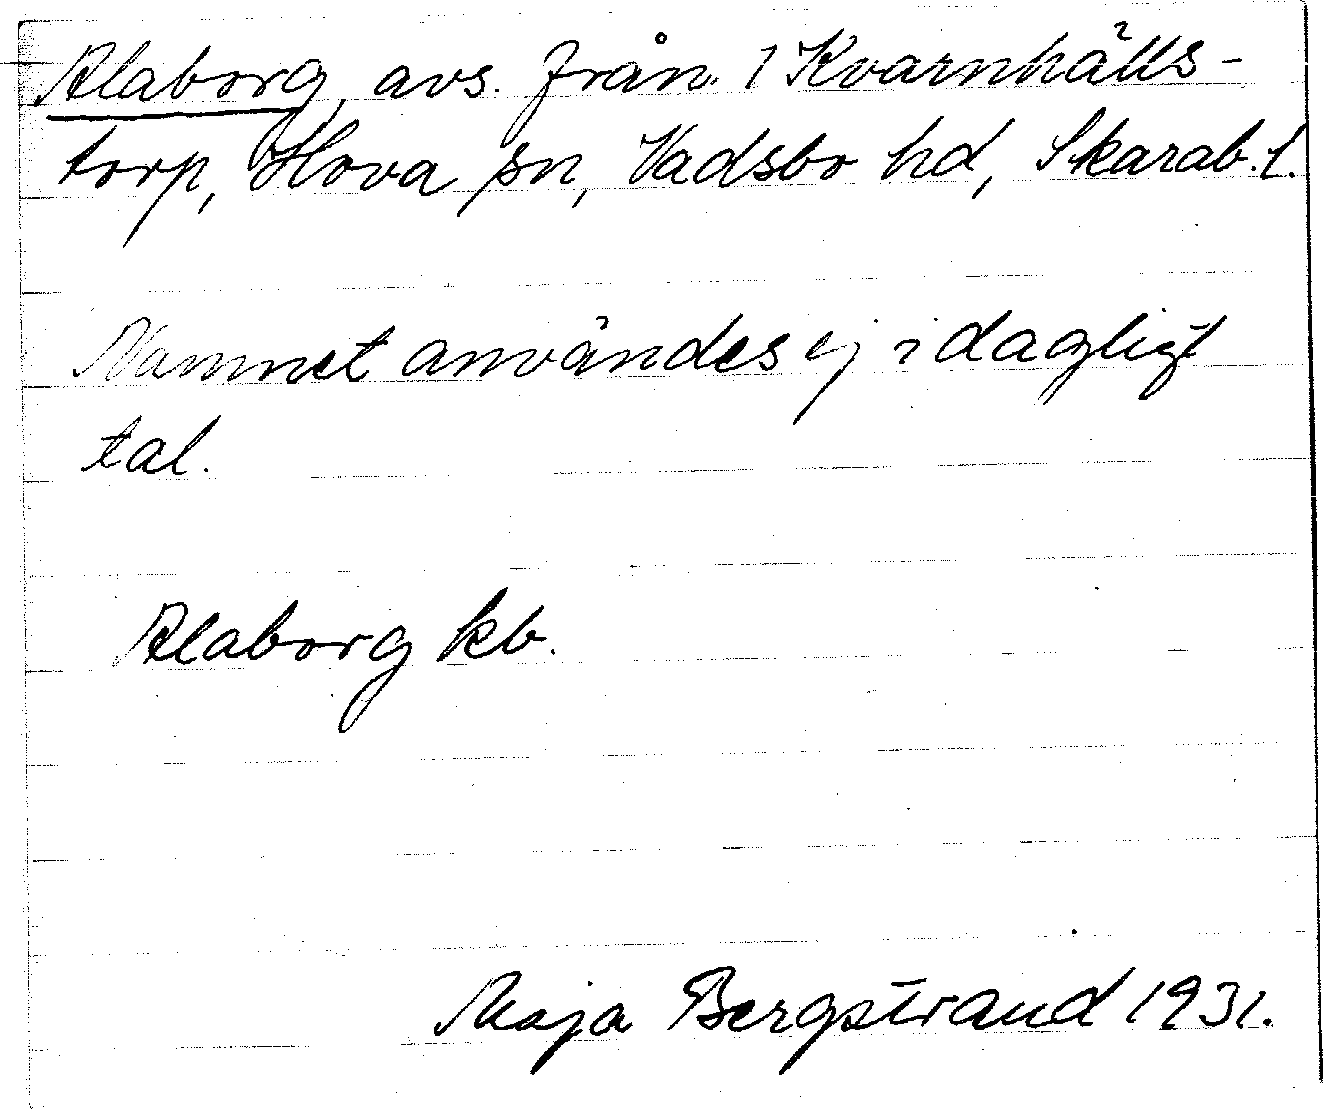 Alaborg, avs. från 1 Kvarnhälls-
torp, Hova sn, Vadsbo hd, Skarab. l.
Namnet användes ej i dagligt
tal.
Alaborg kb.
Maja Bergstrand 1931.